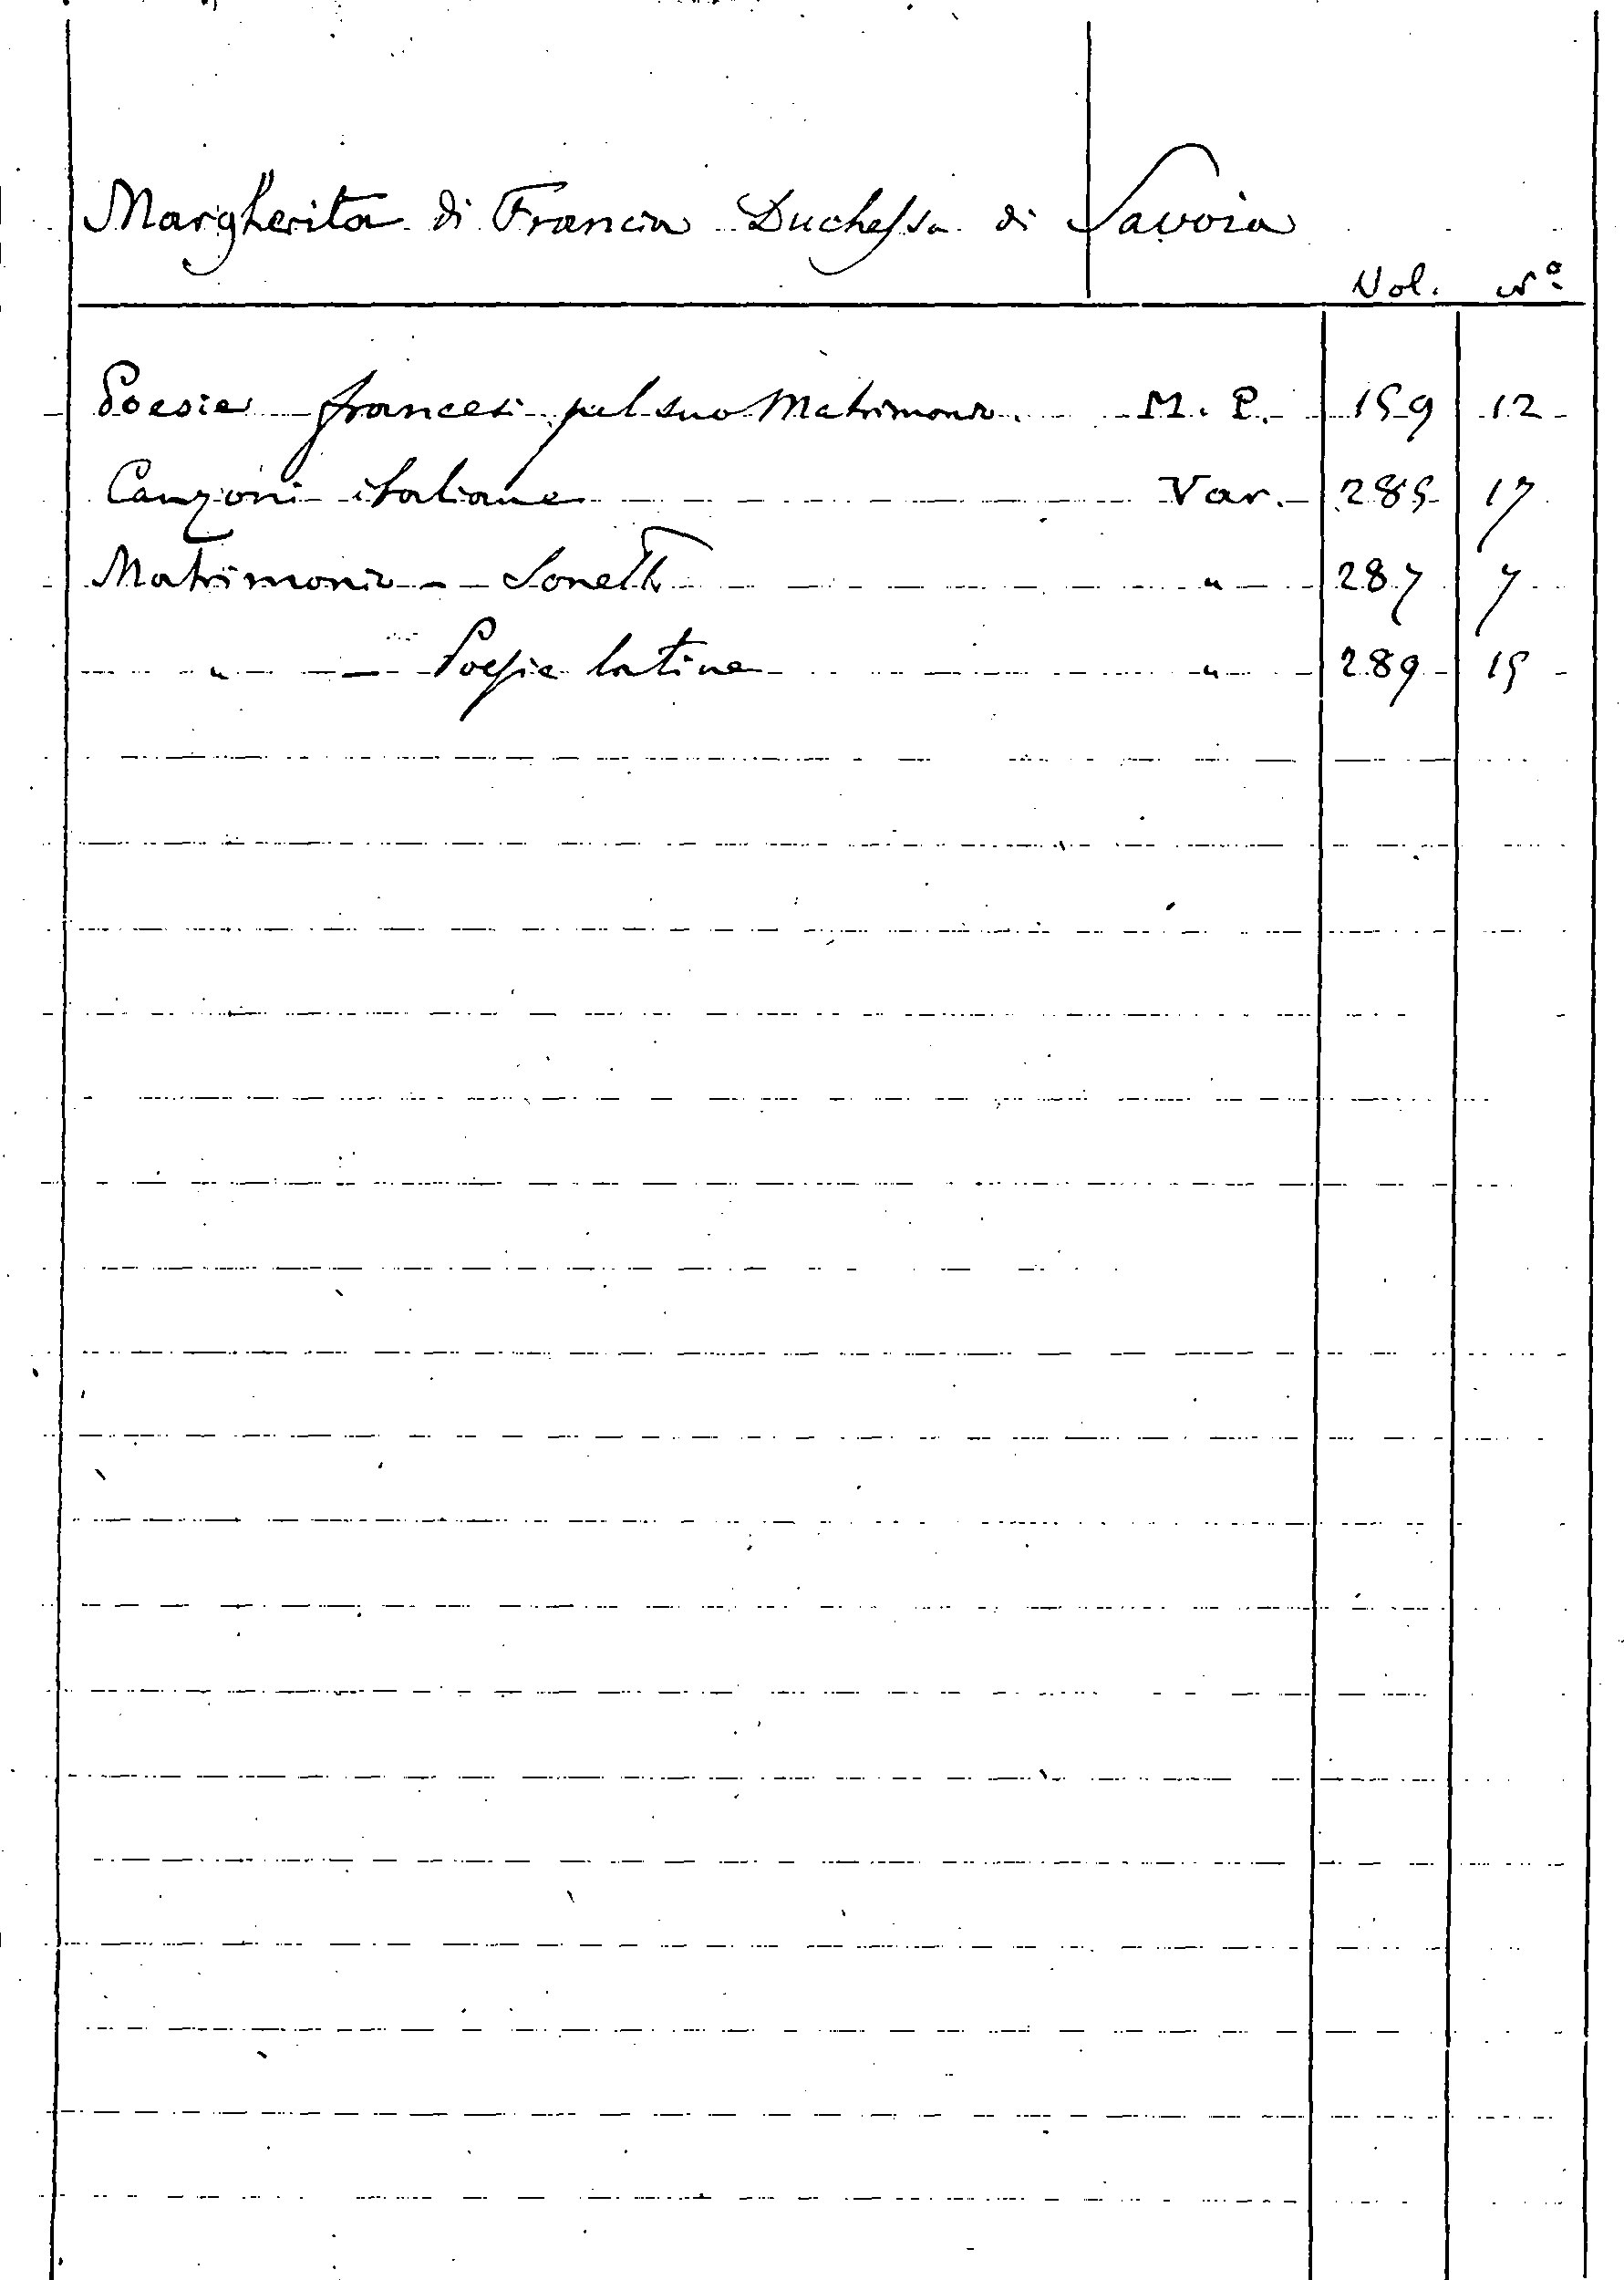 Margherita di Francia Duchessa di Savoia
Vol. N.º
Poesie francesi pel suo Matrimonio. M. P. 159 12
Canzoni italiane Var. 285 17
Matrimonio - Sonetti " 287 7
" - Poesie latine " 289 15